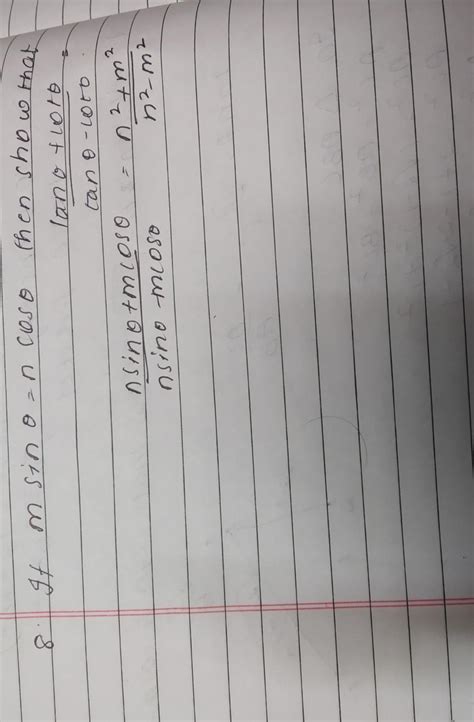 8. If m sin θ = n cosθ then show that
tanθ + cotθ / tanθ - cotθ =
nsinθ + mcosθ / nsinθ - mcosθ = n² + m² / n² - m²